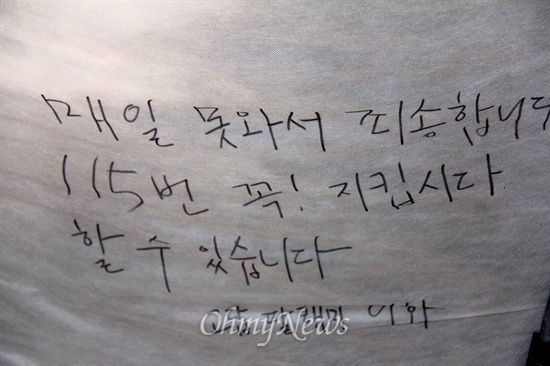 매일 못와서 죄송합니다
115번 꼭! 지킵시다
할 수 있습니다
이화
OhmyNews